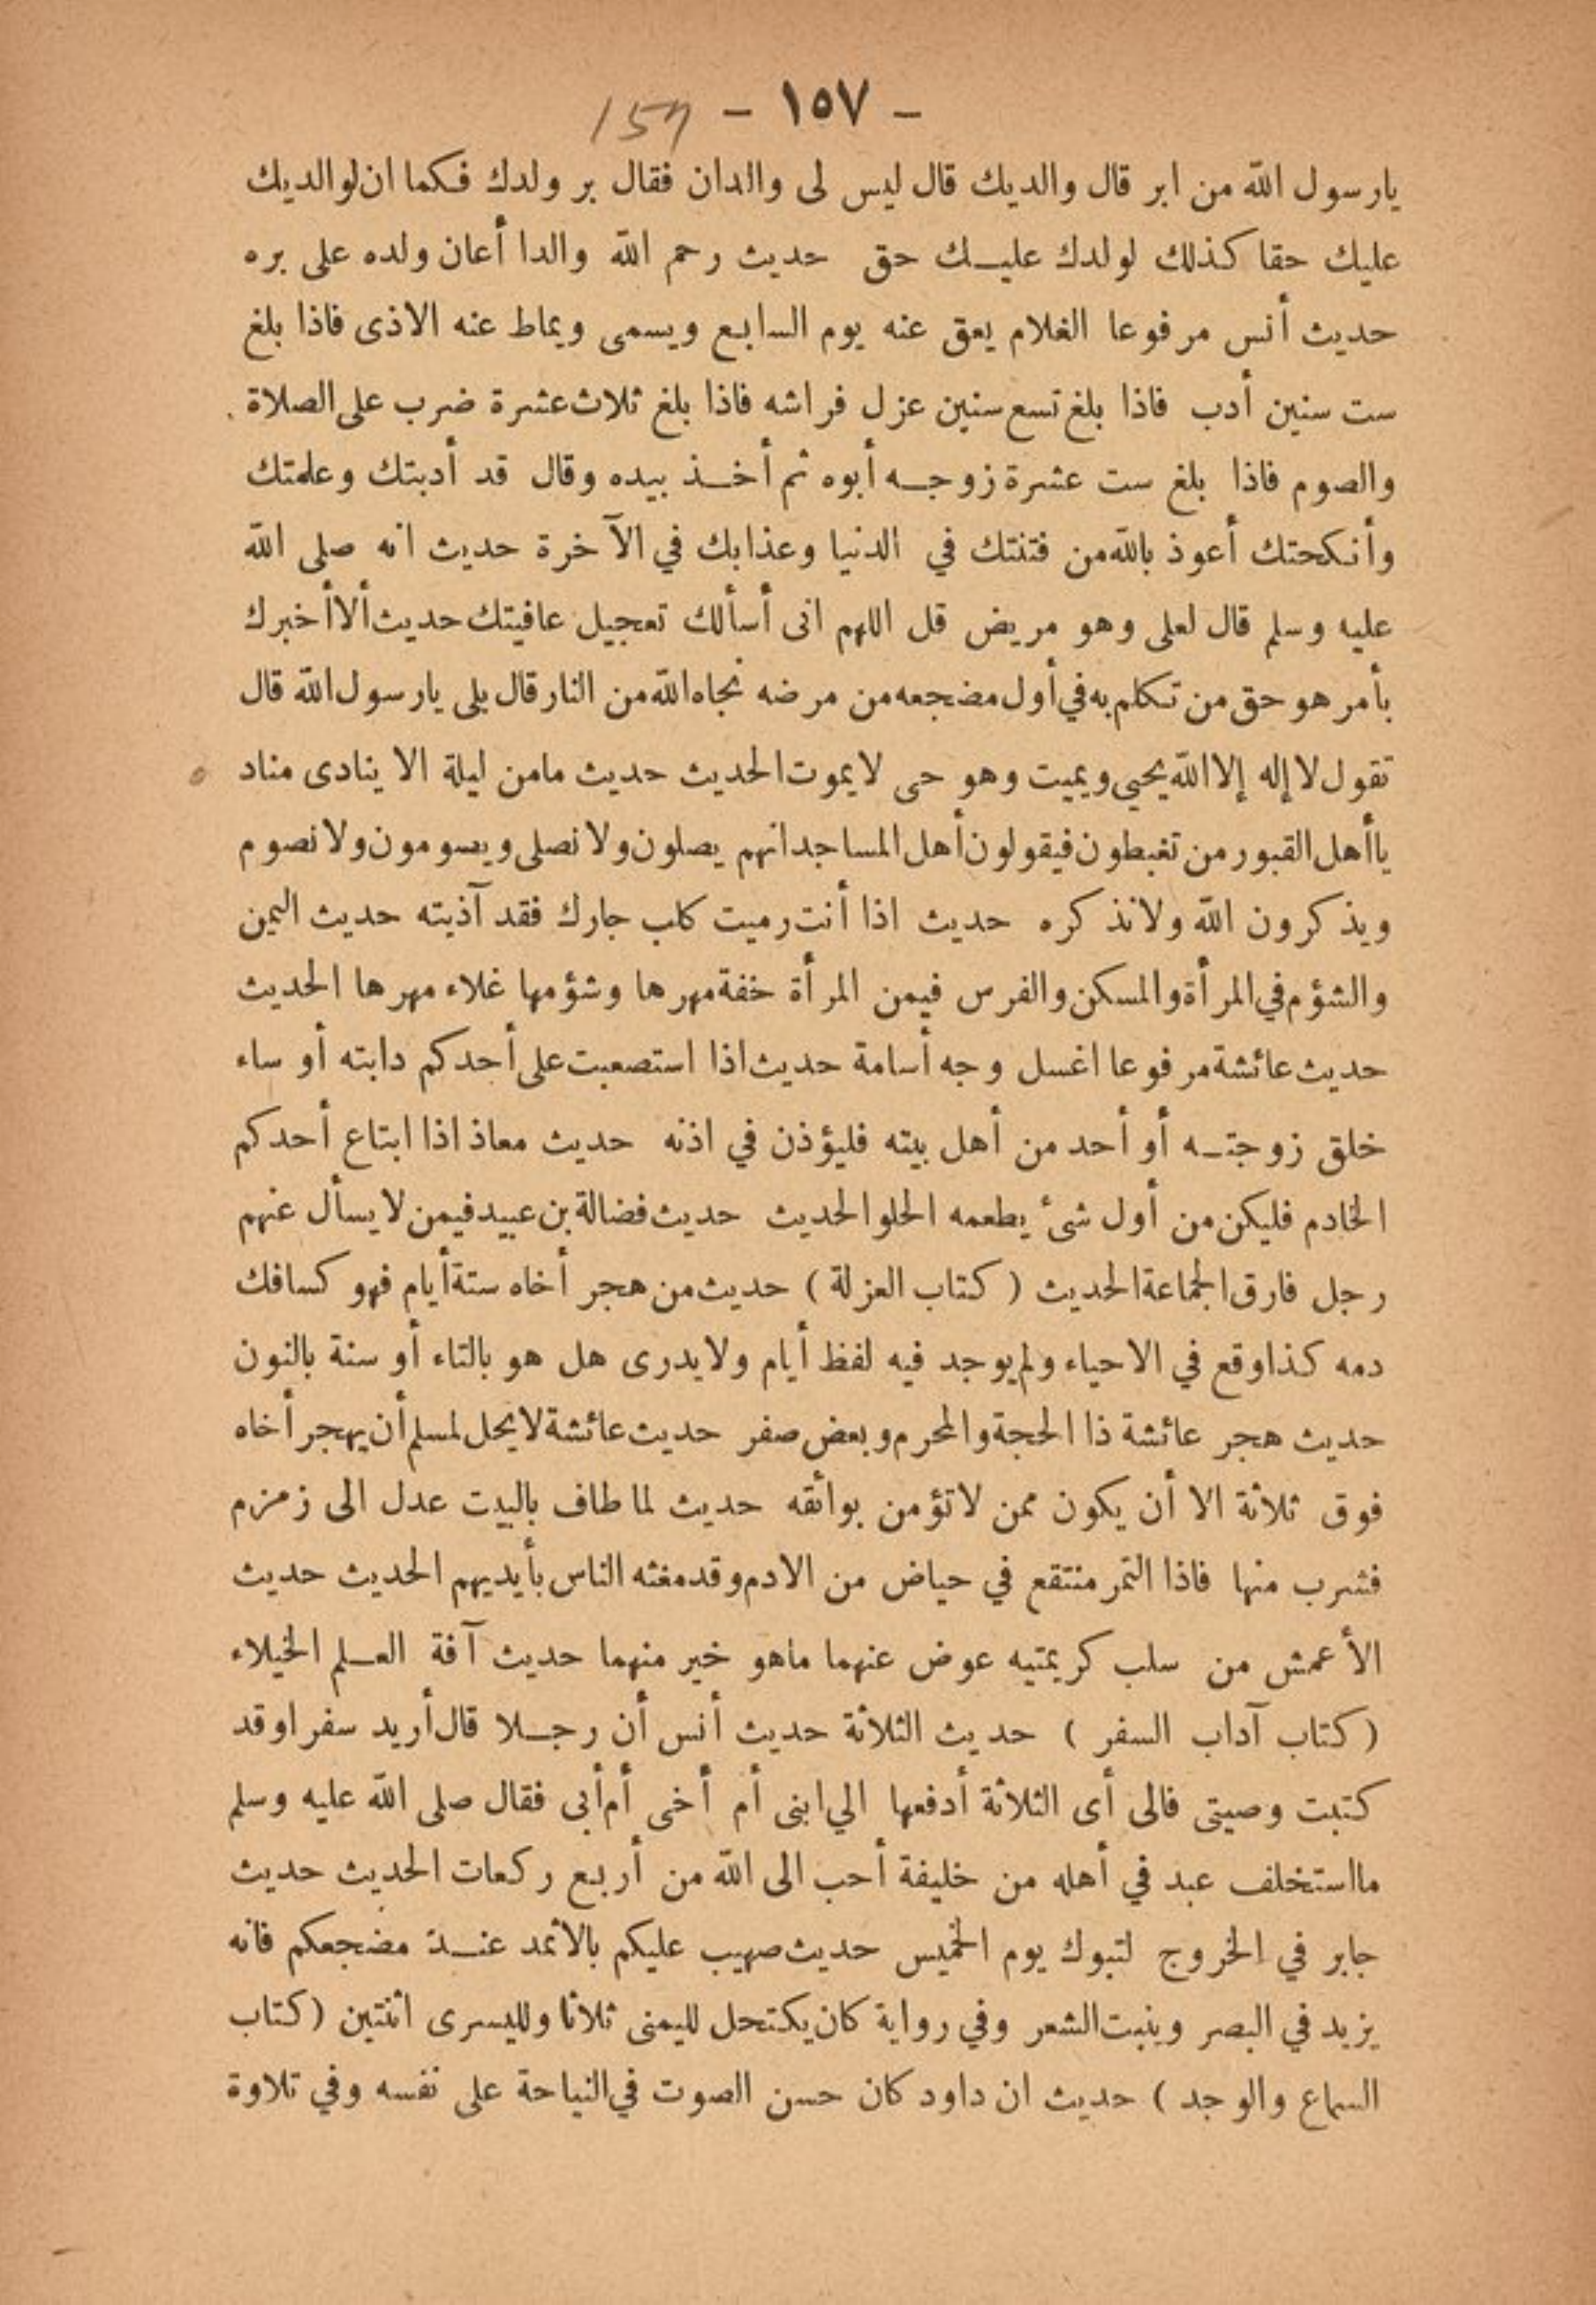 - ١٥٧ - 157
يارسول الله من ابر قال والديك قال ليس لى والدان فقال بر ولدك فكما ان لوالديك
عليك حقا كذلك لولدك عليك حق حديث رحم الله والدا أعان ولده على بره
حديث أنس مرفوعا الغلام يعق عنه يوم السابع ويسمى ويماط عنه الاذى فاذا بلغ
ست سنين أدب فاذا بلغ تسع سنين عزل فراشه فاذا بلغ ثلاث عشرة ضرب على الصلاة
والصوم فاذا بلغ ست عشرة زوجه أبوه ثم أخذ بيده وقال قد أدبتك وعلمتك
وأنكحتك أعوذ بالله من فتنتك في الدنيا وعذابك في الآخرة حديث انه صلى الله
عليه وسلم قال لعلى وهو مريض قل اللهم انى أسألك تعجيل عافيتك حديث ألا أخبرك
بأمر هو حق من تكلم به في أول مضجعه من مرضه نجاه الله من النار قال بلى يارسول الله قال
تقول لا إله إلا الله يحيى ويميت وهو حى لايموت الحديث حديث مامن ليلة الا ينادى مناد
ياأهل القبور من تغبطون فيقولون أهل المساجد انهم يصلون ولا نصلى ويصومون ولا نصوم
ويذكرون الله ولانذكره حديث اذا أنت رميت كلب جارك فقد آذيته حديث اليمن
والشؤم في المرأة والمسكن والفرس فيمن المرأة خفة مهرها وشؤمها غلاء مهرها الحديث
حديث عائشة مرفوعا اغسل وجه أسامة حديث اذا استصعبت على أحدكم دابته أو ساء
خلق زوجته أو أحد من أهل بيته فليؤذن في اذنه حديث معاذ اذا ابتاع أحدكم
الخادم فليكن من أول شئ يطعمه الحلو الحديث حديث فضالة بن عبيد فيمن لا يسأل عنهم
رجل فارق الجماعة الحديث ( كتاب العزلة ) حديث من هجر أخاه ستة أيام فهو كسافك
دمه كذا وقع في الاحياء ولم يوجد فيه لفظ أيام ولايدرى هل هو بالتاء أو سنة بالنون
حديث هجر عائشة ذا الحجة والمحرم وبعض صفر حديث عائشة لايحل لمسلم أن يهجر أخاه
فوق ثلاثة الا أن يكون ممن لاتؤمن بوائقه حديث لما طاف بالبيت عدل الى زمزم
فشرب منها فاذا التمر منتقع في حياض من الادم وقد مغثه الناس بأيديهم الحديث حديث
الأعمش من سلب كريمتيه عوض عنهما ماهو خير منهما حديث آفة العلم الخيلاء
( كتاب آداب السفر ) حديث الثلاثة حديث أنس أن رجلا قال أريد سفرا وقد
كتبت وصيتى فالى أى الثلاثة أدفعها الي ابنى أم أخى أم أبى فقال صلى الله عليه وسلم
مااستخلف عبد في أهله من خليفة أحب الى الله من أربع ركعات الحديث حديث
جابر في الخروج لتبوك يوم الخميس حديث صهيب عليكم بالاثمد عند مضجعكم فانه
يزيد في البصر وينبت الشعر وفي رواية كان يكتحل لليمنى ثلاثا ولليسرى اثنتين ( كتاب
السماع والوجد ) حديث ان داود كان حسن الصوت في النياحة على نفسه وفي تلاوة